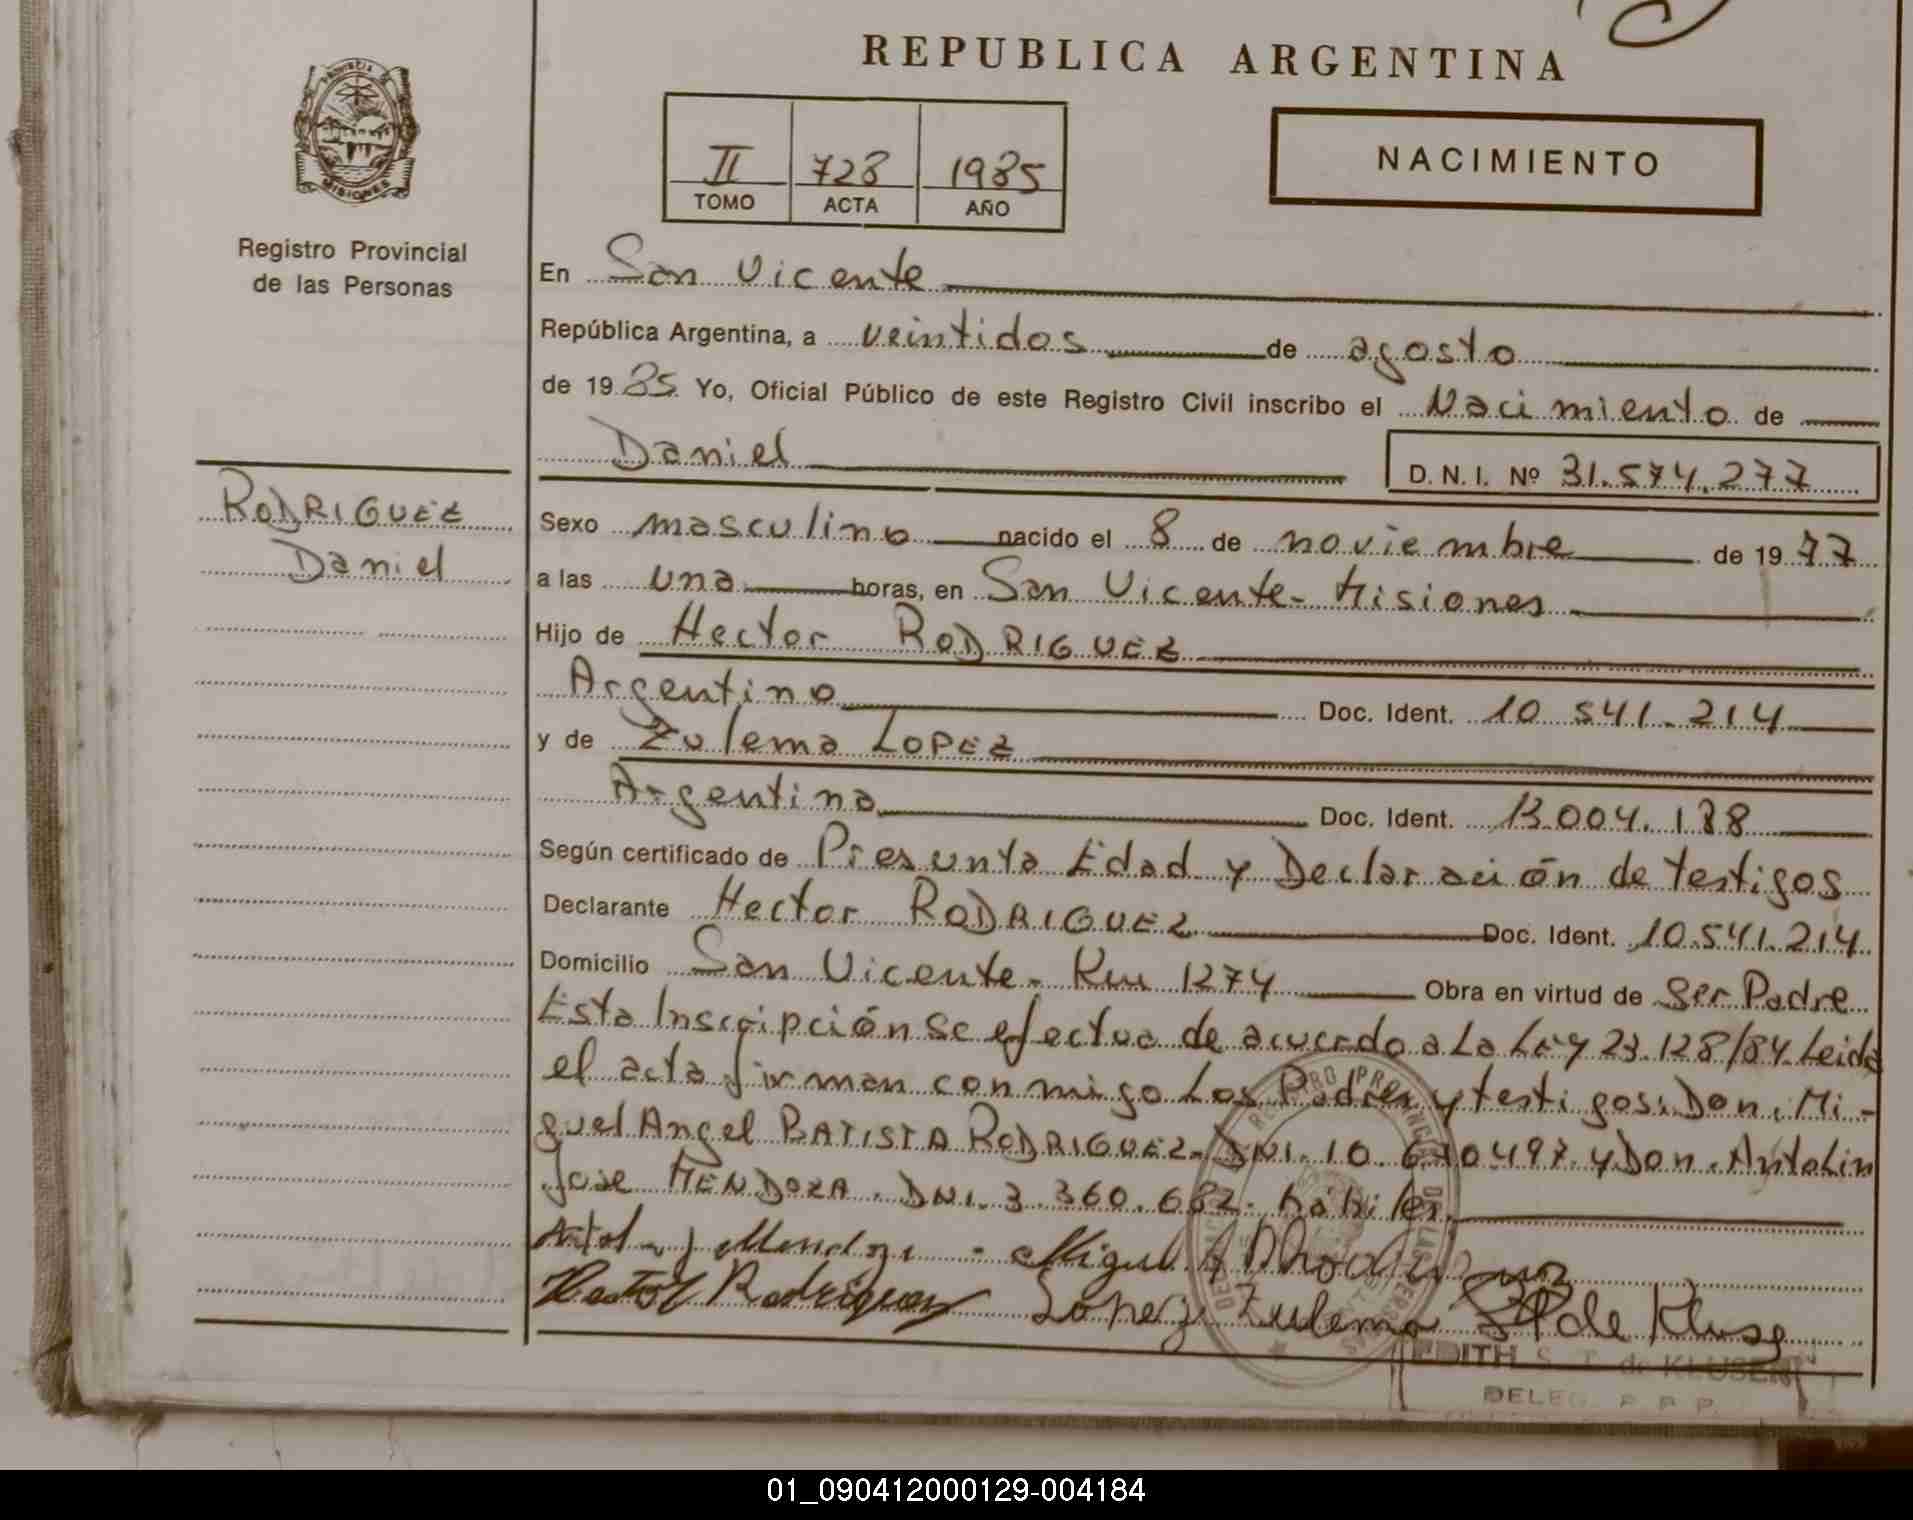 REPUBLICA ARGENTINA
PROVINCIA DE
MISIONES
Registro Provincial
de las Personas
II 728 1985
TOMO ACTA AÑO
NACIMIENTO
En San Vicente
República Argentina, a veintidos de agosto
de 1985 Yo, Oficial Público de este Registro Civil inscribo el Nacimiento de
Daniel D. N. I. Nº 31.574.277
RODRIGUEZ
Daniel
Sexo masculino nacido el 8 de noviembre de 1977
a las una horas, en San Vicente - Misiones
Hijo de Hector RODRIGUEZ
Argentino Doc. Ident. 10 541.214
y de Zulema LOPEZ
Argentina Doc. Ident. 13.004.188
Según certificado de Presunta Edad y Declaración de testigos
Declarante Hector RODRIGUEZ Doc. Ident. 10.541.214
Domicilio San Vicente - Km 1274 Obra en virtud de Ser Padre
Esta Inscripción se efectua de acuerdo a La Ley 23.128/84. Leida
el acta firman conmigo Los Padres y testigos: Don. Mi-
guel Angel BATISTA RODRIGUEZ - DNI. 10.610497 y Don. Antolin
Jose MENDOZA. DNI. 3.360.682. hábiles.
Antol J Mendoza - Miguel A Rodriguez
Hector Rodriguez Lopez Zulema de Klusen
EDITH S. T. de KLUSEN
DELEG. R P P
01_090412000129-004184